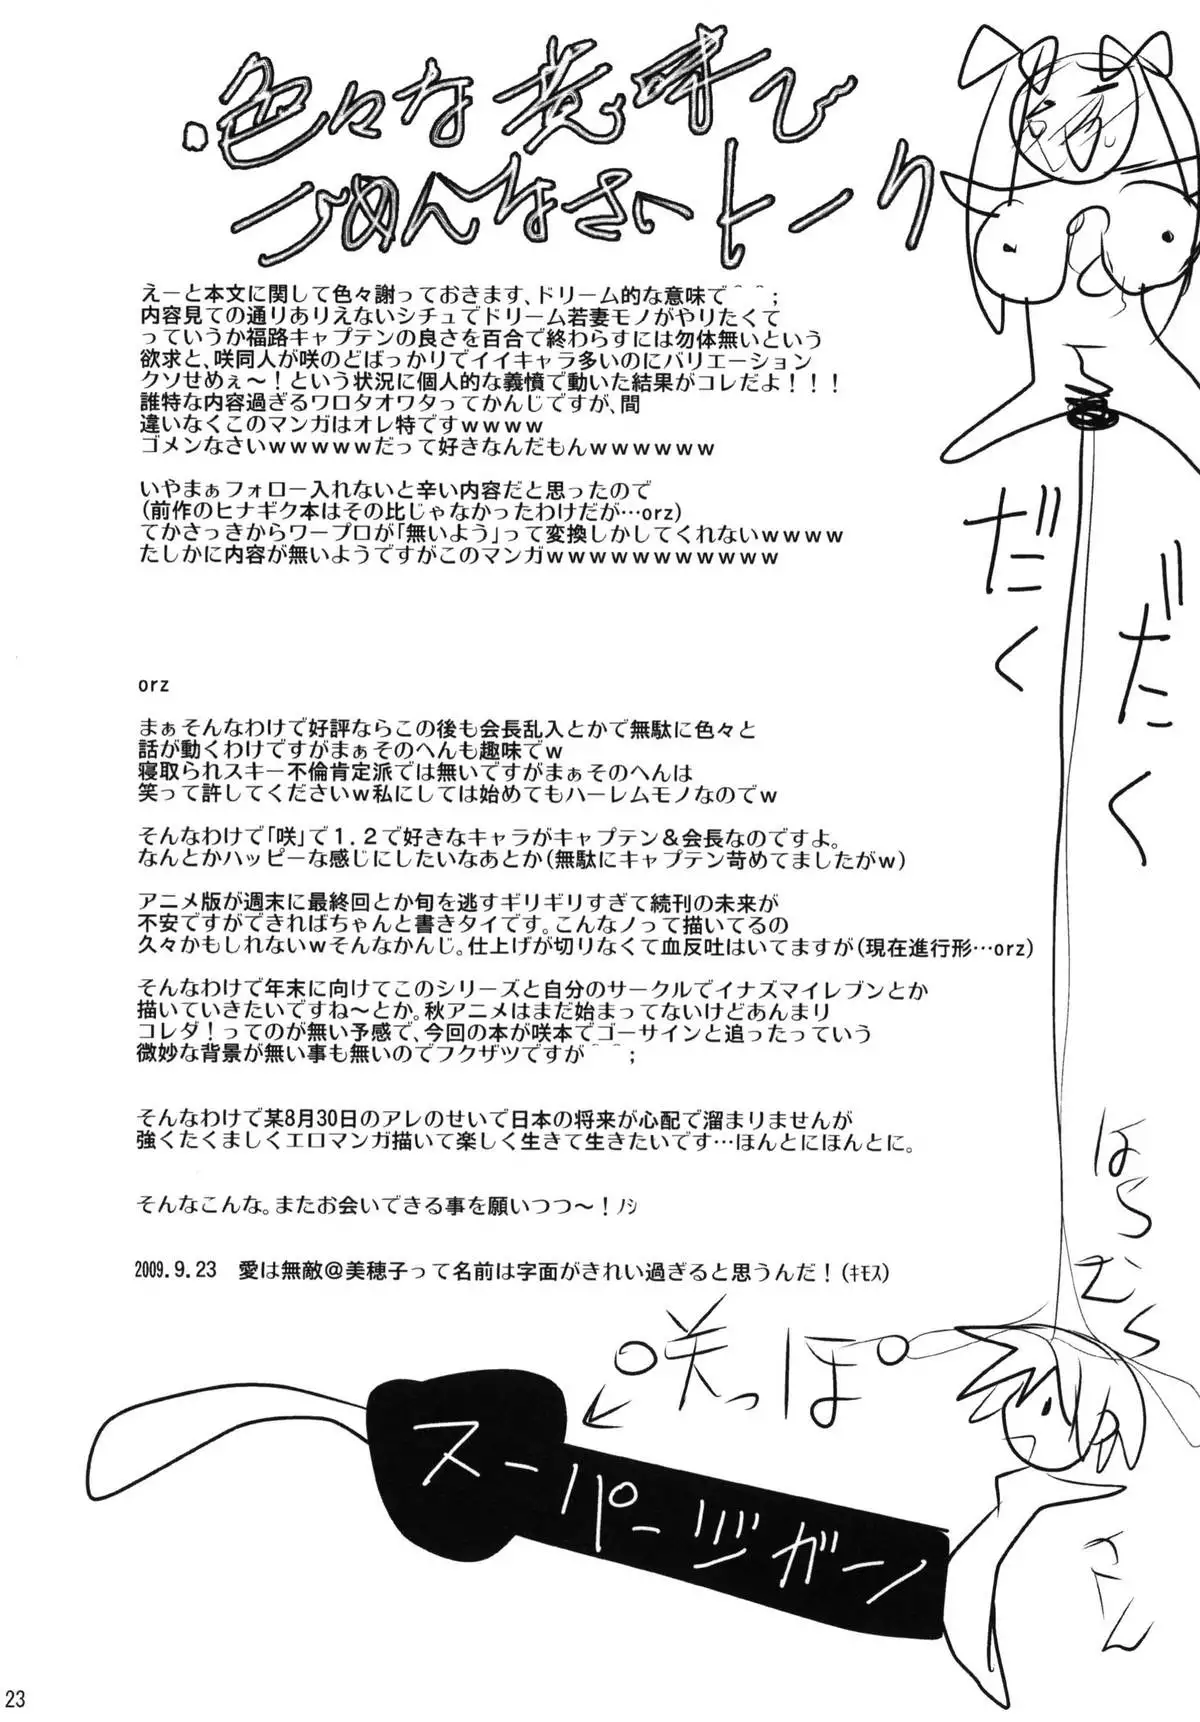 色々な意味で
ごめんなさいトーク
えーと本文に関して色々謝っておきます、ドリーム的な意味で＾＾；
内容見ての通りありえないシチュでドリーム若妻モノがやりたくて
っていうか福路キャプテンの良さを百合で終わらすには勿体無いという
欲求と、咲同人が咲のどばっかりでイイキャラ多いのにバリエーション
クソせめぇ～！という状況に個人的な義憤で動いた結果がコレだよ！！！
誰特な内容過ぎるワロタオワタってかんじですが、間
違いなくこのマンガはオレ特ですｗｗｗｗ
ゴメンなさいｗｗｗｗｗだって好きなんだもんｗｗｗｗｗｗ
いやまぁフォロー入れないと辛い内容だと思ったので
(前作のヒナギク本はその比じゃなかったわけだが…orz)
てかさっきからワープロが「無いよう」って変換しかしてくれないｗｗｗｗ
たしかに内容が無いようですがこのマンガｗｗｗｗｗｗｗｗｗｗｗ
orz
まぁそんなわけで好評ならこの後も会長乱入とかで無駄に色々と
話が動くわけですがまぁそのへんも趣味でｗ
寝取られスキー不倫肯定派では無いですがまぁそのへんは
笑って許してくださいｗ私にしては始めてもハーレムモノなのでｗ
そんなわけで「咲」で１.２で好きなキャラがキャプテン＆会長なのですよ。
なんとかハッピーな感じにしたいなあとか(無駄にキャプテン苛めてましたがｗ)
アニメ版が週末に最終回とか旬を逃すギリギリすぎて続刊の未来が
不安ですができればちゃんと書きタイです。こんなノって描いてるの
久々かもしれないｗそんなかんじ。仕上げが切りなくて血反吐はいてますが(現在進行形…orz)
そんなわけで年末に向けてこのシリーズと自分のサークルでイナズマイレブンとか
描いていきたいですね～とか。秋アニメはまだ始まってないけどあんまり
コレダ！ってのが無い予感で、今回の本が咲本でゴーサインと追ったっていう
微妙な背景が無い事も無いのでフクザツですが＾＾；
そんなわけで某8月30日のアレのせいで日本の将来が心配で溜まりませんが
強くたくましくエロマンガ描いて楽しく生きて生きたいです…ほんとにほんとに。
そんなこんな。またお会いできる事を願いつつ～！ﾉｼ
2009.9.23　愛は無敵＠美穂子って名前は字面がきれい過ぎると思うんだ！(ｷﾓｽ)
だく
だく
はらむら
さん
咲っぽ
スーパーヅガーン
23